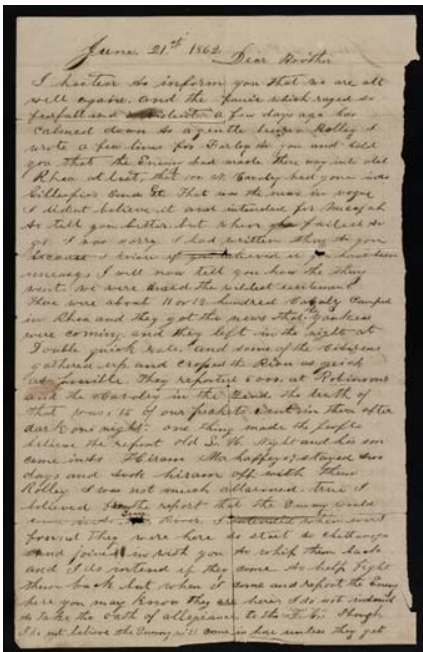 June. 21st 1862
Dear Brother
I hasten to inform you that we are all
well again. and the panic which raged so
fearfull and violent a few days ago has
calmed down to a gentle breeze Rolley I
wrote a few lines for Farley to you and told
you that the Enemy had made there way into old
Rhea at last, that
That was the news in vogue
I didnt believe it and intended for
to tell you better but when failed to
go. I was sorry I had written thing to you
because I knew if you believed it you have been
uneasy I will now tell you how the thing
went. we were the wildest
There were about 11 or 12 hundred Cavalry Camped
in Rhea and they got the news that the Yankees
were coming, and they left in the night at
Double quick rate. and some of the Citizens
gathered up and crossed the River as quick
as possible. They reported 5000. at Robinsons
and the Cavalry in the the truth of
that was, 15 of our pickets went in there after
dark one night. one thing made the people
believe the report old Night and his son
came into Hiram stayed two
days and took hiram off with them
Rolley I was not much allarmed. true I
believed the report that the Enemy would
River, I intended when
found they were here to start to
and join in with you to whip them back
and I do intend if they come to help fight
them back but when it come and report the Enemy
here you may know they are here I do not intend
to take the oath of allegiance to the Though
I do not believe the Enemy will come in here unless they get